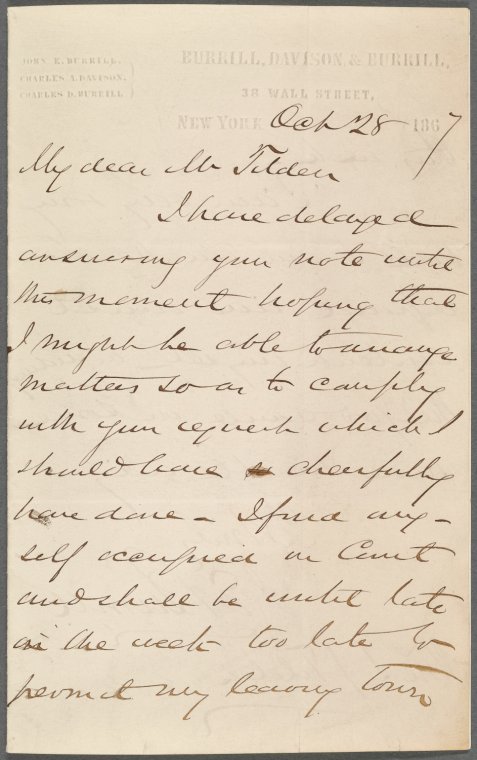 JOHN E. BURRILL,
CHARLES A. DAVISON,
CHARLES D. BURRILL
BURRILL, DAVISON & BURRILL,
38 WALL STREET,
NEW YORK Oct 28 1867
My dear Mr Tilden
I have delayed
answering your note until
this moment hoping that
I might be able to arrange
matters so as to comply
with your request which I
should have cheerfully
have done - I find my-
self occupied in Court
and shall be until late
in the week too late to
permit my leaving town